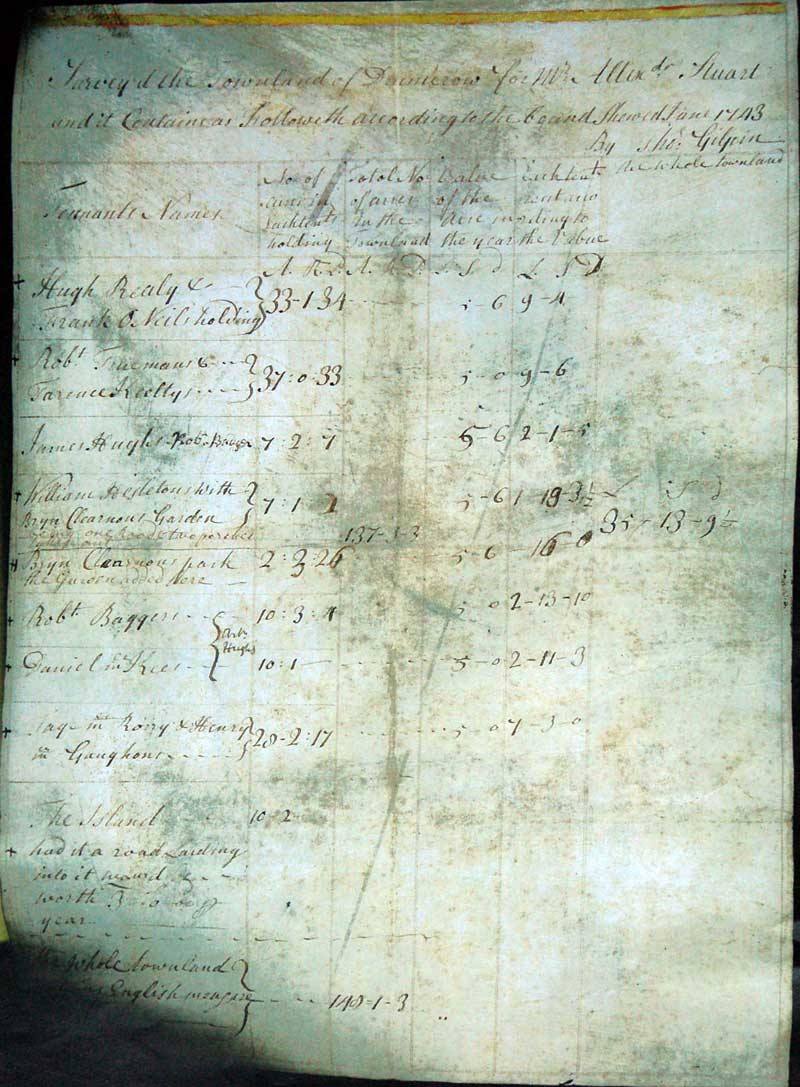 Survey'd the Townland of Drumcrow for Mr. Allexdr Stuart
and it Containe as Followeth according to the bound Shewed Jane 1743
By Thos. Gilpin
Tennants Names
No. of acres in Eachtents holding
Total No of acres in the Townland
Value of the Acre the year
Eachtents rent according to the Value
the whole townland
A. R. P. A. R. P. S. d L. S D
Hugh Realy &
Frank O Neils holding 33-1 34 5-6 9-4
Robt Truemans &
Tarence Reillys 37:0:33 5-0 9-6
James Hughs Robt. Bauger 7:2:7 5-6 2-1-5
William Hesletons with
Bryn Clearnons Garden 7:1 1 5-6 1-19 3½ L S d
being one Rood & two perches 137-1-3 35-13-9½
Bryn Clearnons park 2:3:26 5-6 -16-0
the Garden added here
Robt. Baggers 10:3:4 5 0 2-13-10
Hughs
Daniel mc Kees 10:1 5-0 2-11-3
mc Rorry & Henry
mc Gaughons 28-2:17 5 0 7-3-0
The Island 10-2
had it a road Leading
into it
worth
year
the whole townland
English measure 148-1-3